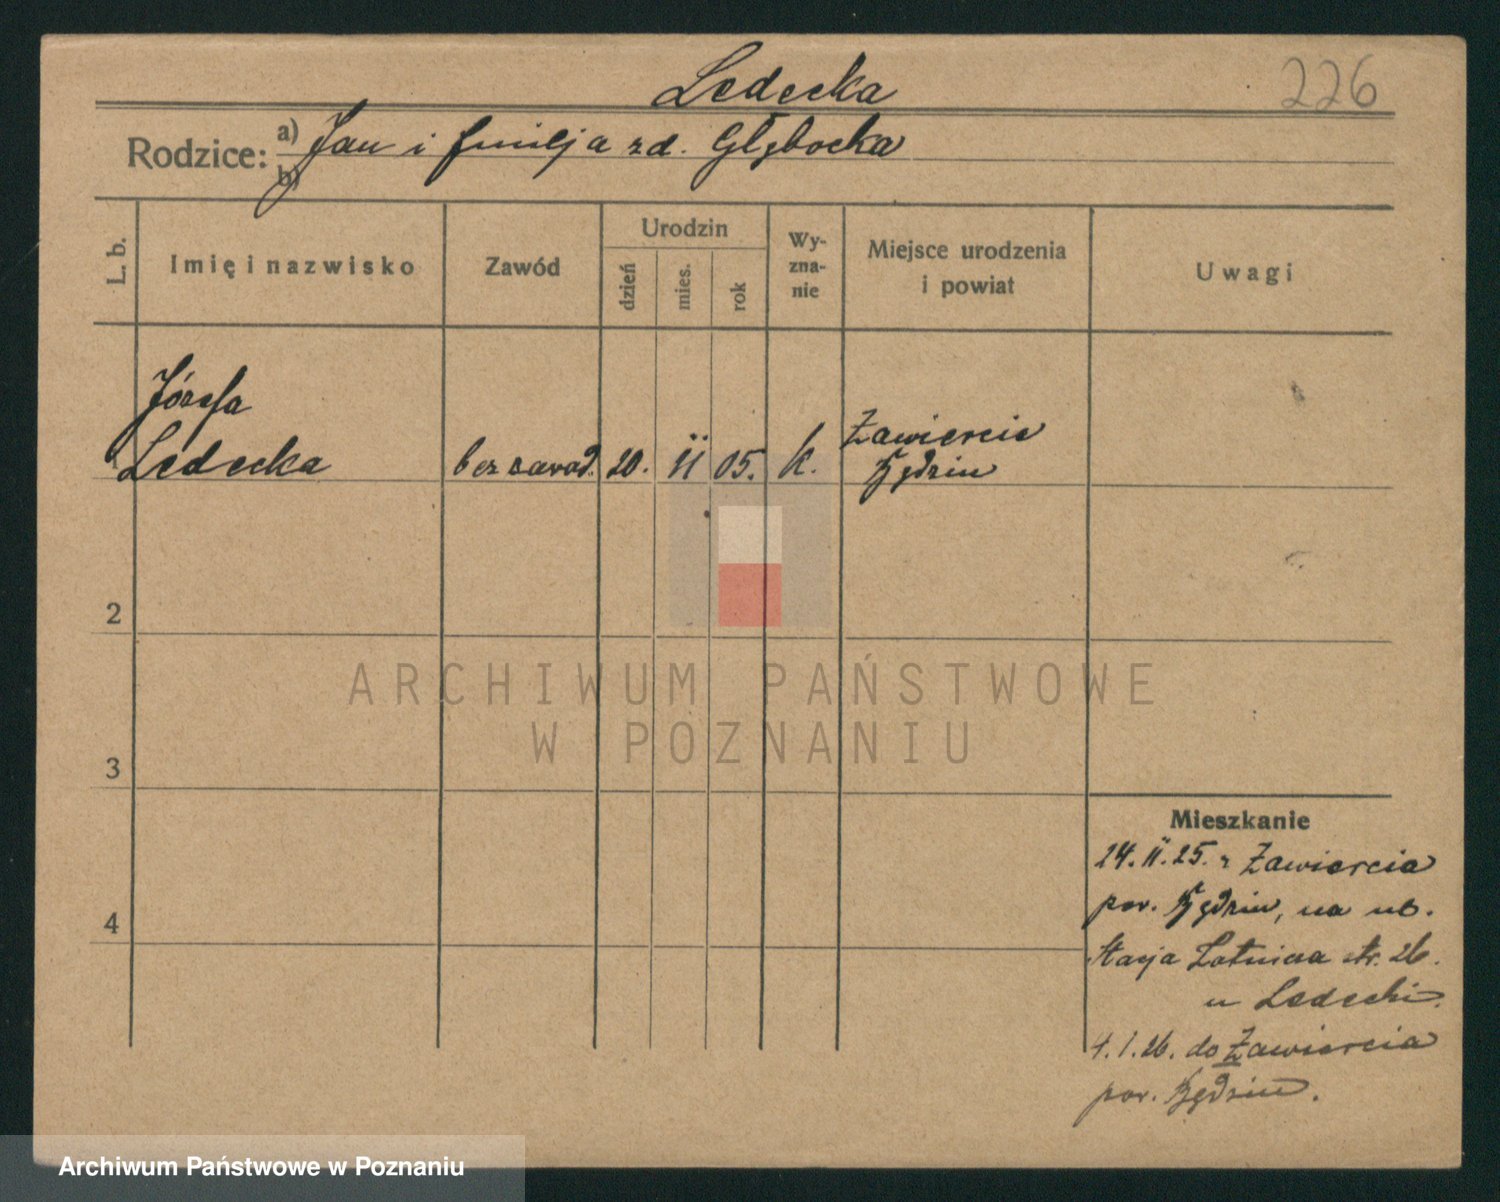 Ledecka
226
Rodzice: a) Jan i Emilja zd. Głębocka
b)
L. b.
Imię i nazwisko
Zawód
Urodzin
dzień
mies.
rok
Wy-
zna-
nie
Miejsce urodzenia
i powiat
Uwagi
Józefa
Ledecka
bez zawod.
20.
II
05.
k.
Zawiercie
Będzin
2
3
4
Mieszkanie
24.II.25. z Zawiercia
pow. Będzin, na ub.
Stacja Lotnicza str. 26.
u Ledecki.
4.1.26. do Zawiercia
pow. Będzin.
ARCHIWUM PAŃSTWOWE
W POZNANIU
Archiwum Państwowe w Poznaniu